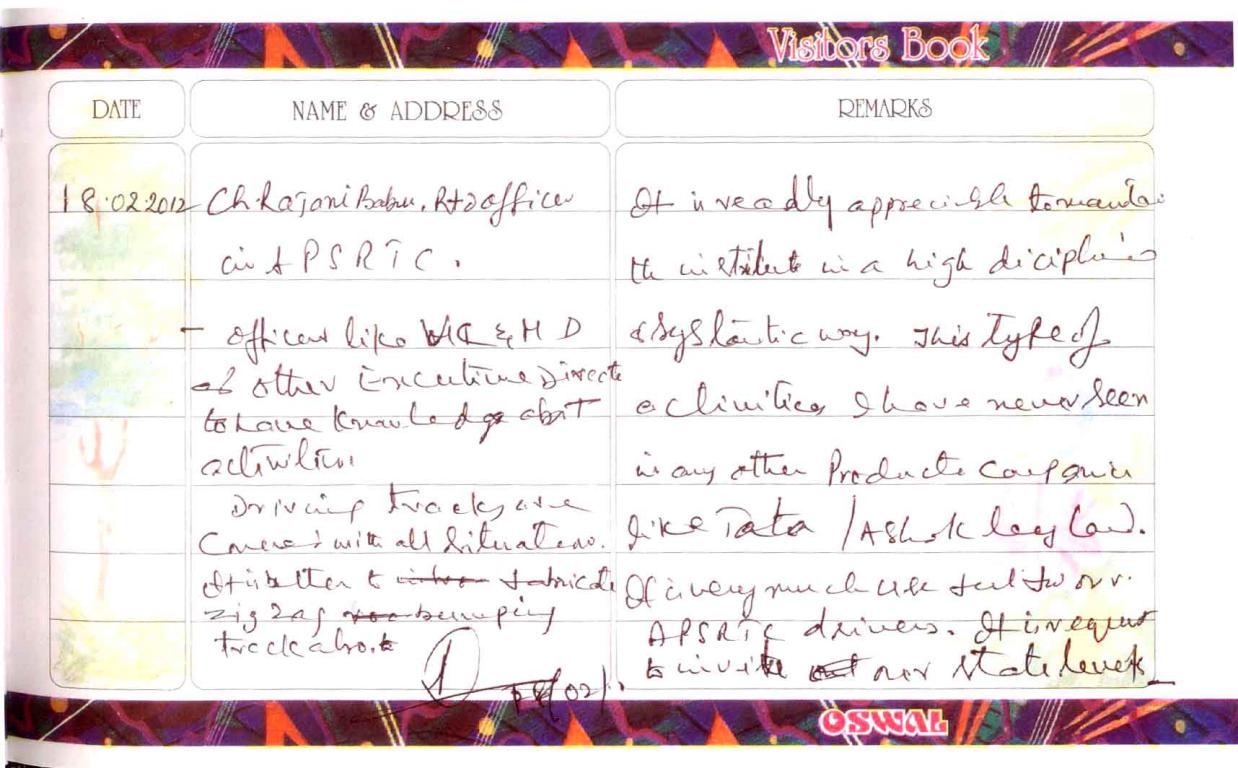 Visitors Book
DATE
NAME & ADDRESS
REMARKS
18.02.2012
Ch Rajani Babu, Rtd officer
in APSRTC.
It is really appreciable to maintai
the institute in a high diciplines
& systamtic way. This type of
activities I have never seen
in any other Products companies
like Tata / Ashok leyland.
It is very much use ful to our
APSRTC drivers. It is request
to invite our state levels
- officers like VC & M D
of other Executive Directo
to have knowledge abot
activities
Driving tracks are
Covered with all Situations.
It is better to fabricate
zig zag bumping
track also.
18/02/
OSWAL